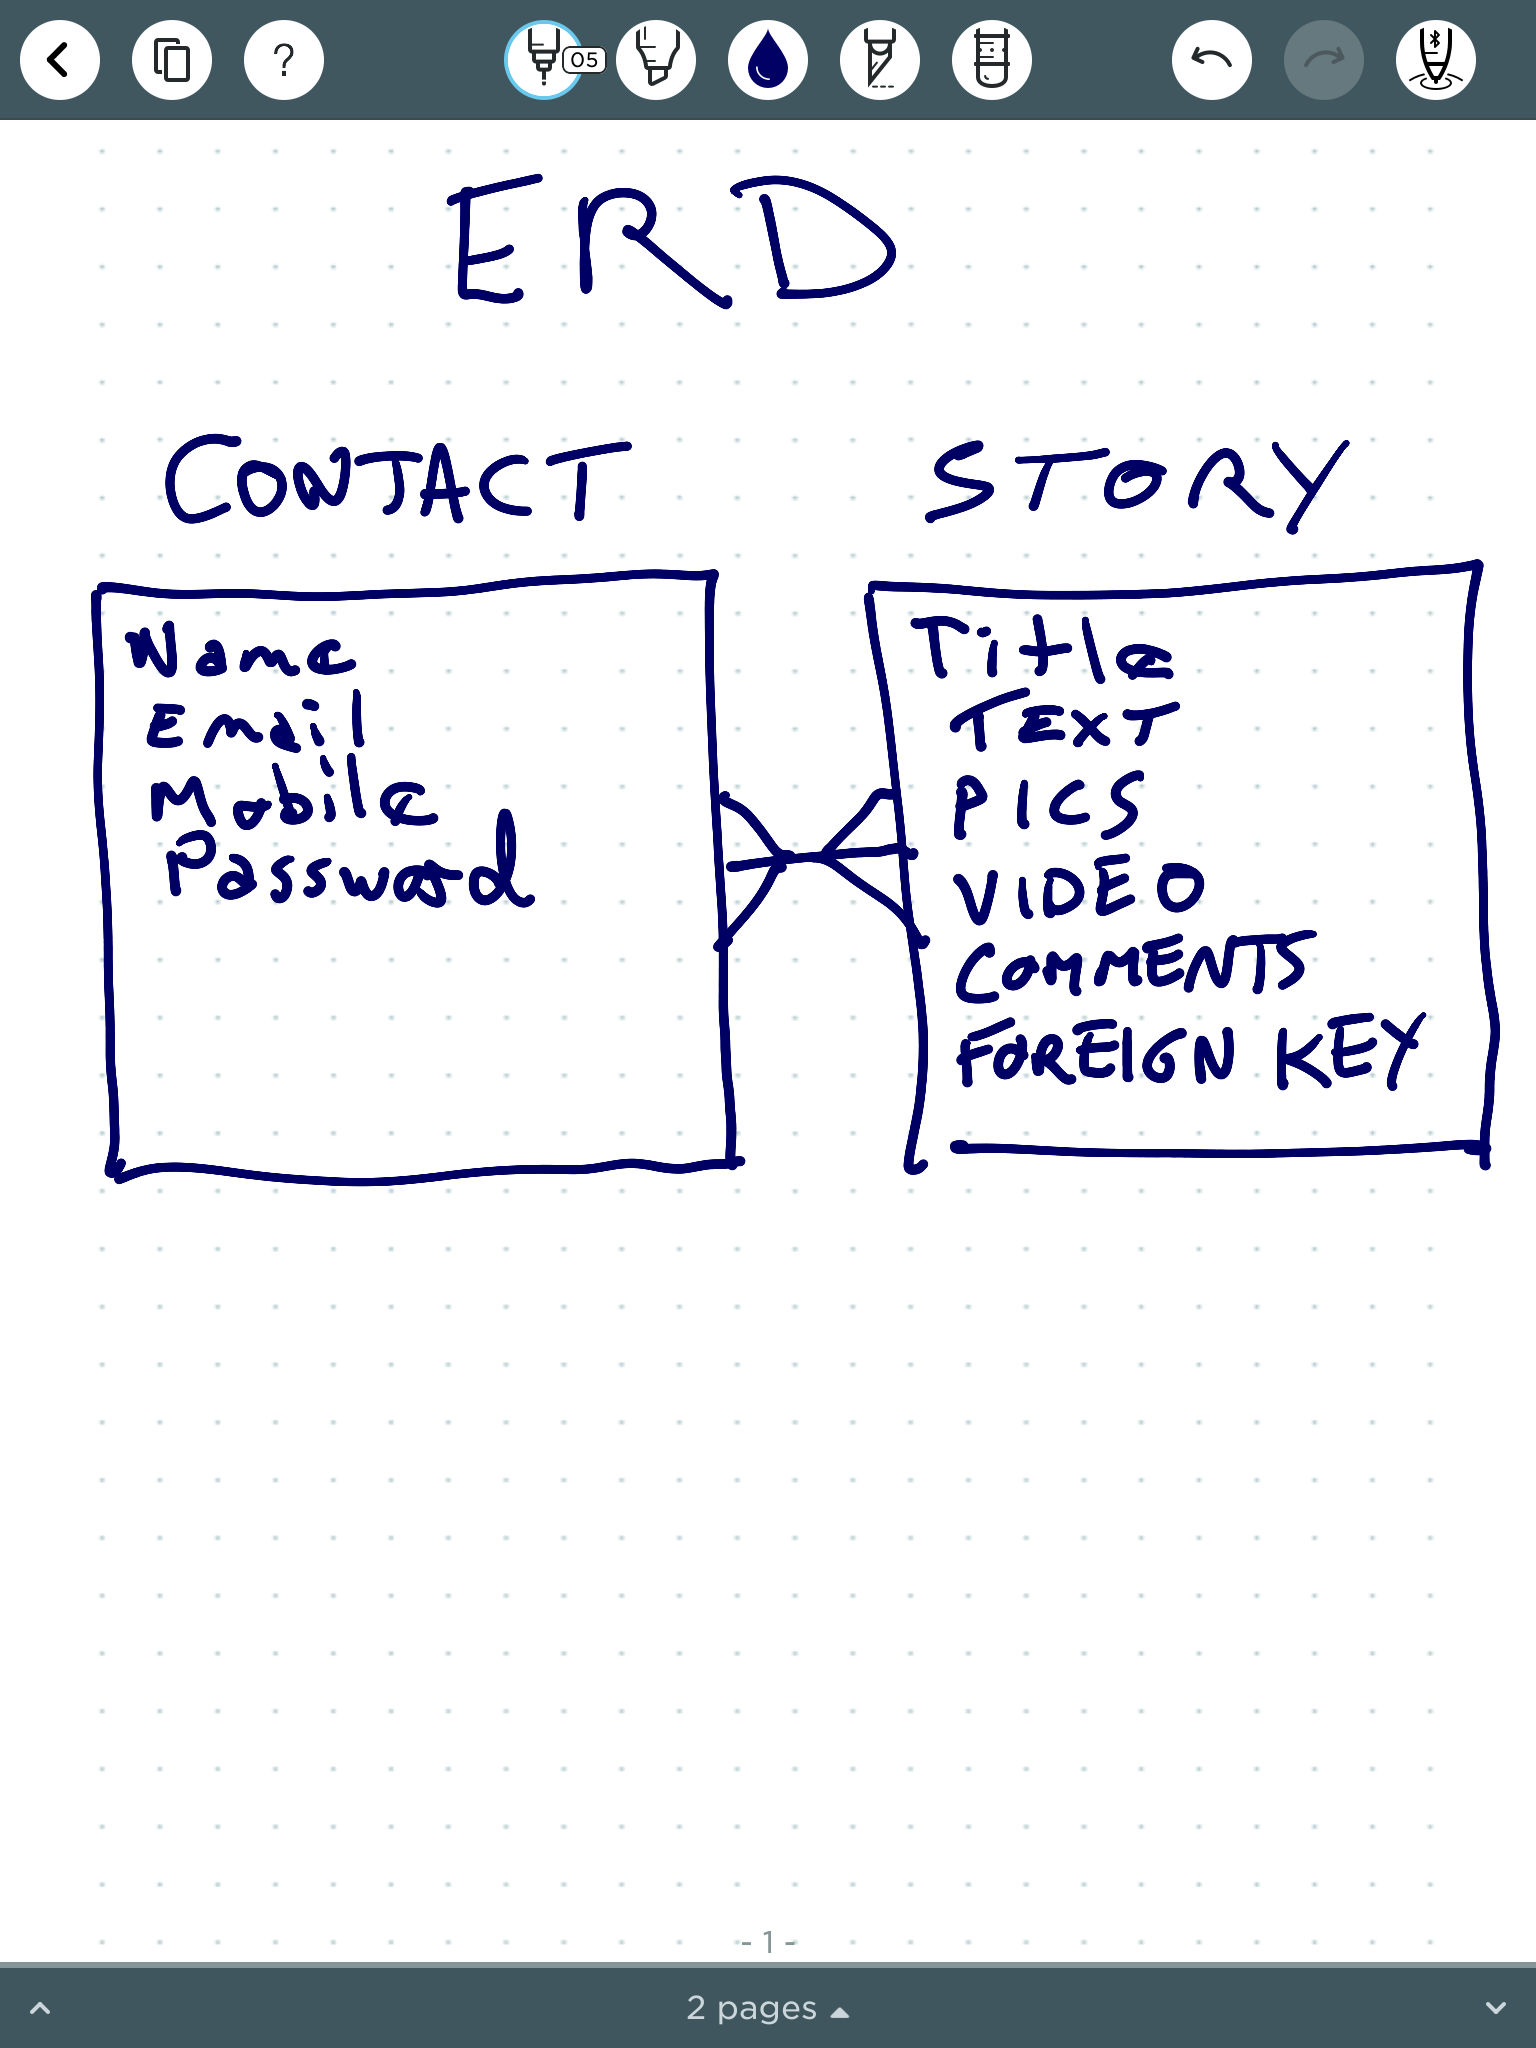 ?
05
ERD
CONTACT
STORY
Name
Email
Mobile
Password
Title
TEXT
PICS
VIDEO
COMMENTS
FOREIGN KEY
- 1 -
2 pages